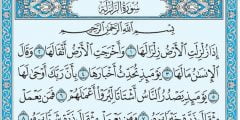 سُورَةُ الزَّلْزَلَةِ
بِسْمِ اللَّهِ الرَّحْمَٰنِ الرَّحِيمِ
إِذَا زُلْزِلَتِ الْأَرْضُ زِلْزَالَهَا ۝١ وَأَخْرَجَتِ الْأَرْضُ أَثْقَالَهَا ۝٢ وَقَالَ
الْإِنسَٰنُ مَا لَهَا ۝٣ يَوْمَئِذٍ تُحَدِّثُ أَخْبَارَهَا ۝٤ بِأَنَّ رَبَّكَ أَوْحَىٰ لَهَا
۝٥ يَوْمَئِذٍ يَصْدُرُ النَّاسُ أَشْتَاتًا لِّيُرَوْا أَعْمَٰلَهُمْ ۝٦ فَمَن يَعْمَلْ